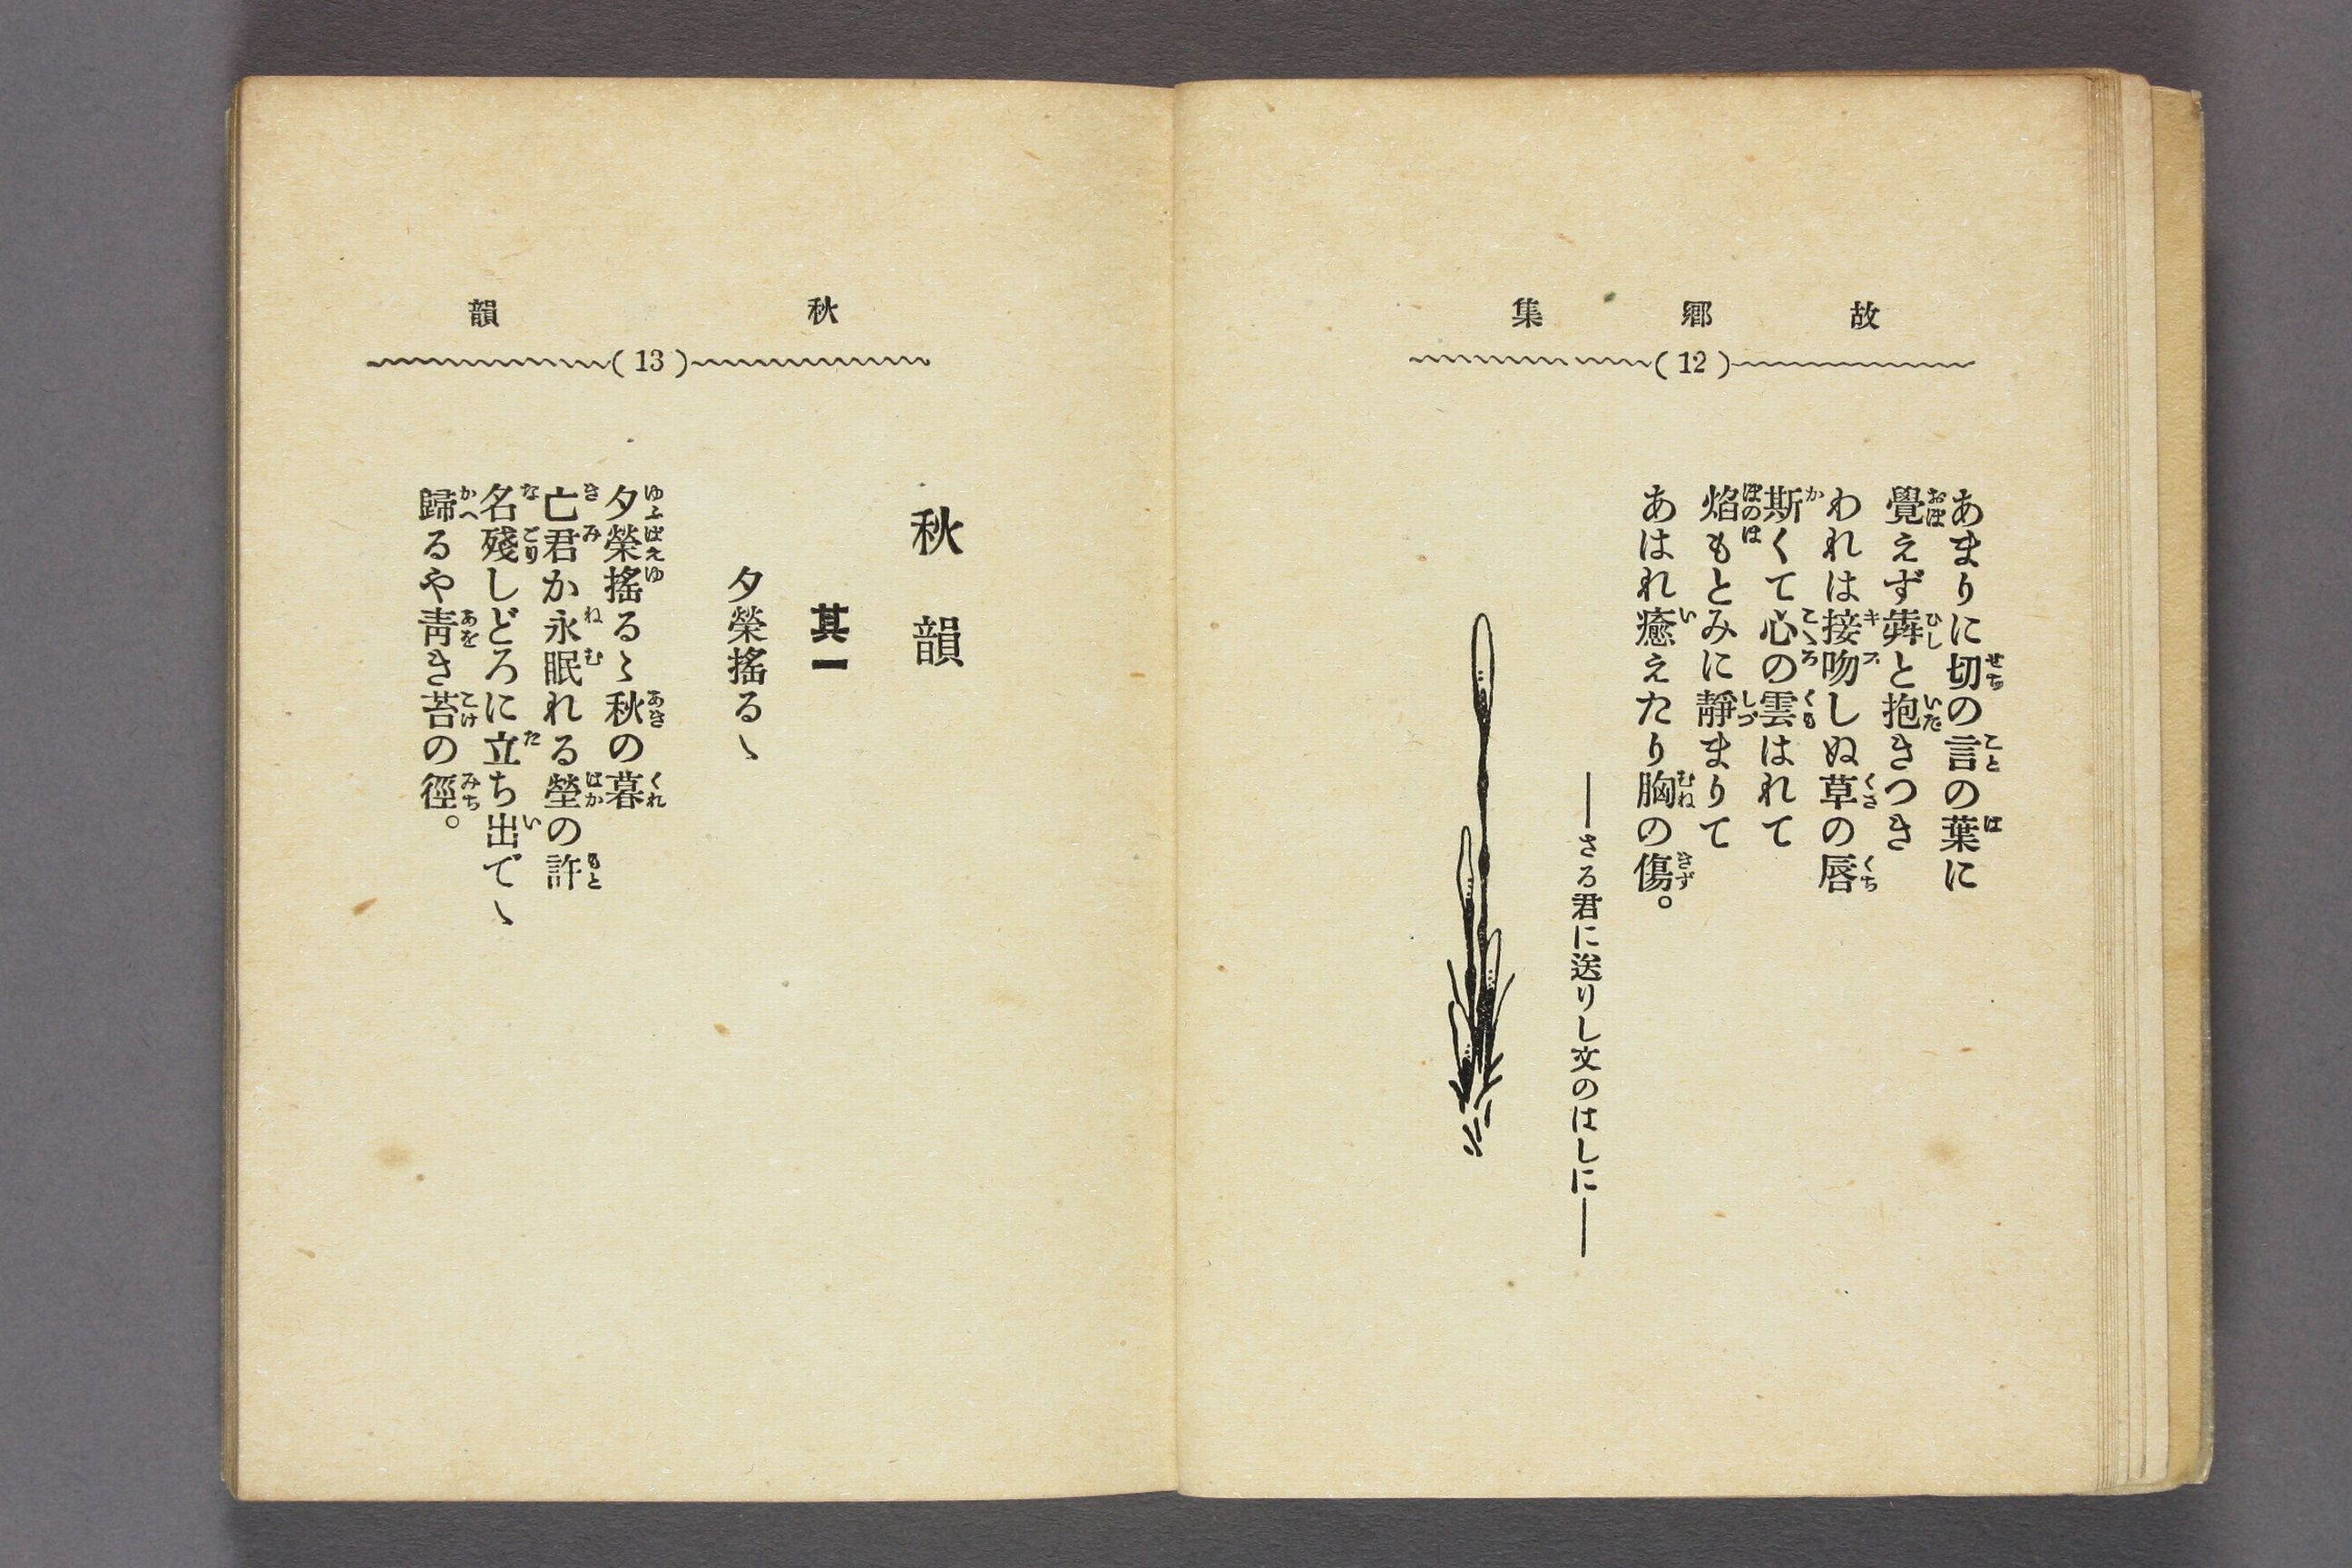 故鄕集
(12)
あまりに切の言の葉に
覺えず犇と抱きつき
われは接吻しぬ草の唇
斯くて心の雲はれて
焰もとみに靜まりて
あはれ癒えたり胸の傷。
――さる君に送りし文のはしに――
秋韻
(13)
秋韻
其一
夕榮搖るゝ
夕榮搖るゝ秋の暮
亡君か永眠れる塋の許
名殘しどろに立ち出でゝ
歸るや靑き苔の徑。